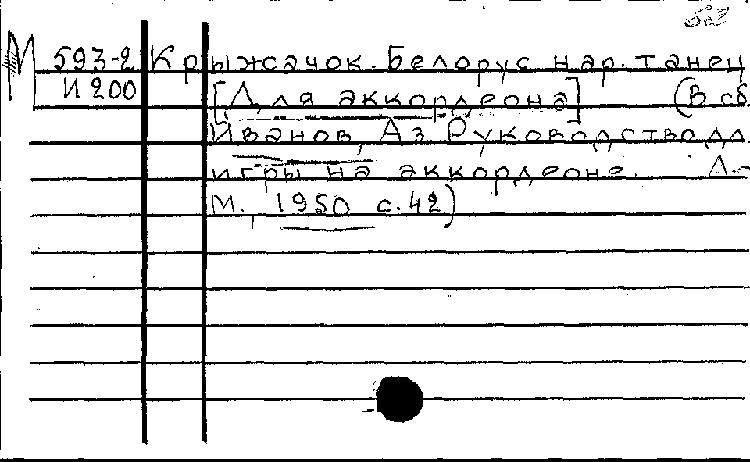 М 593-2 Крыжачок. Белорус. нар. танец
И 200 [Для аккордеона] (В сб.
Иванов, Аз. Руководство дл
игры на аккордеоне. Л.-
М., 1950 с. 42)